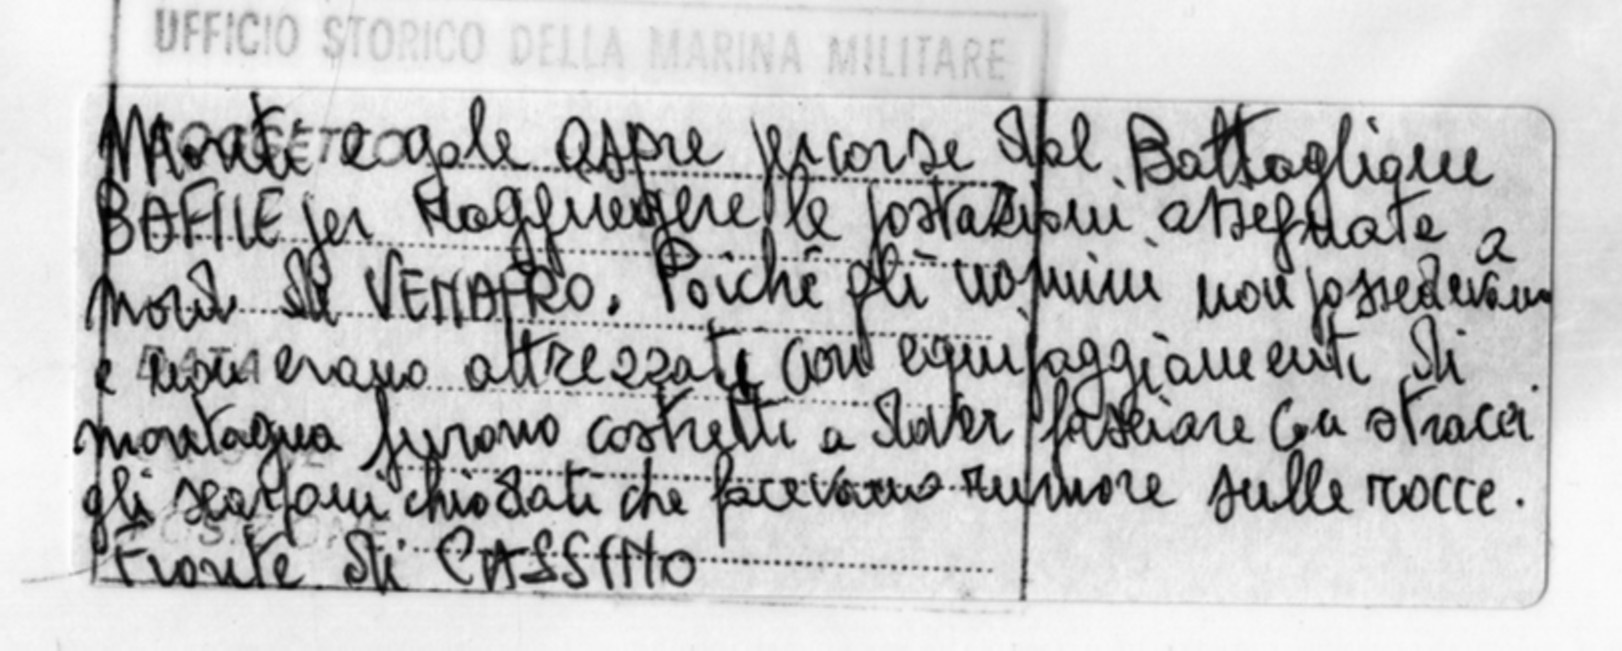 UFFICIO STORICO DELLA MARINA MILITARE
Monti e gole aspre percorse dal Battaglione
BAFILE per raggiungere le postazioni assegnate a
nord di VENAFRO. Poiché gli uomini non possedevano
e non erano attrezzati con equipaggiamenti di
montagna furono costretti a dover fasciare con stracci
gli scarponi chiodati che facevano rumore sulle rocce.
Fronte di CASSINO